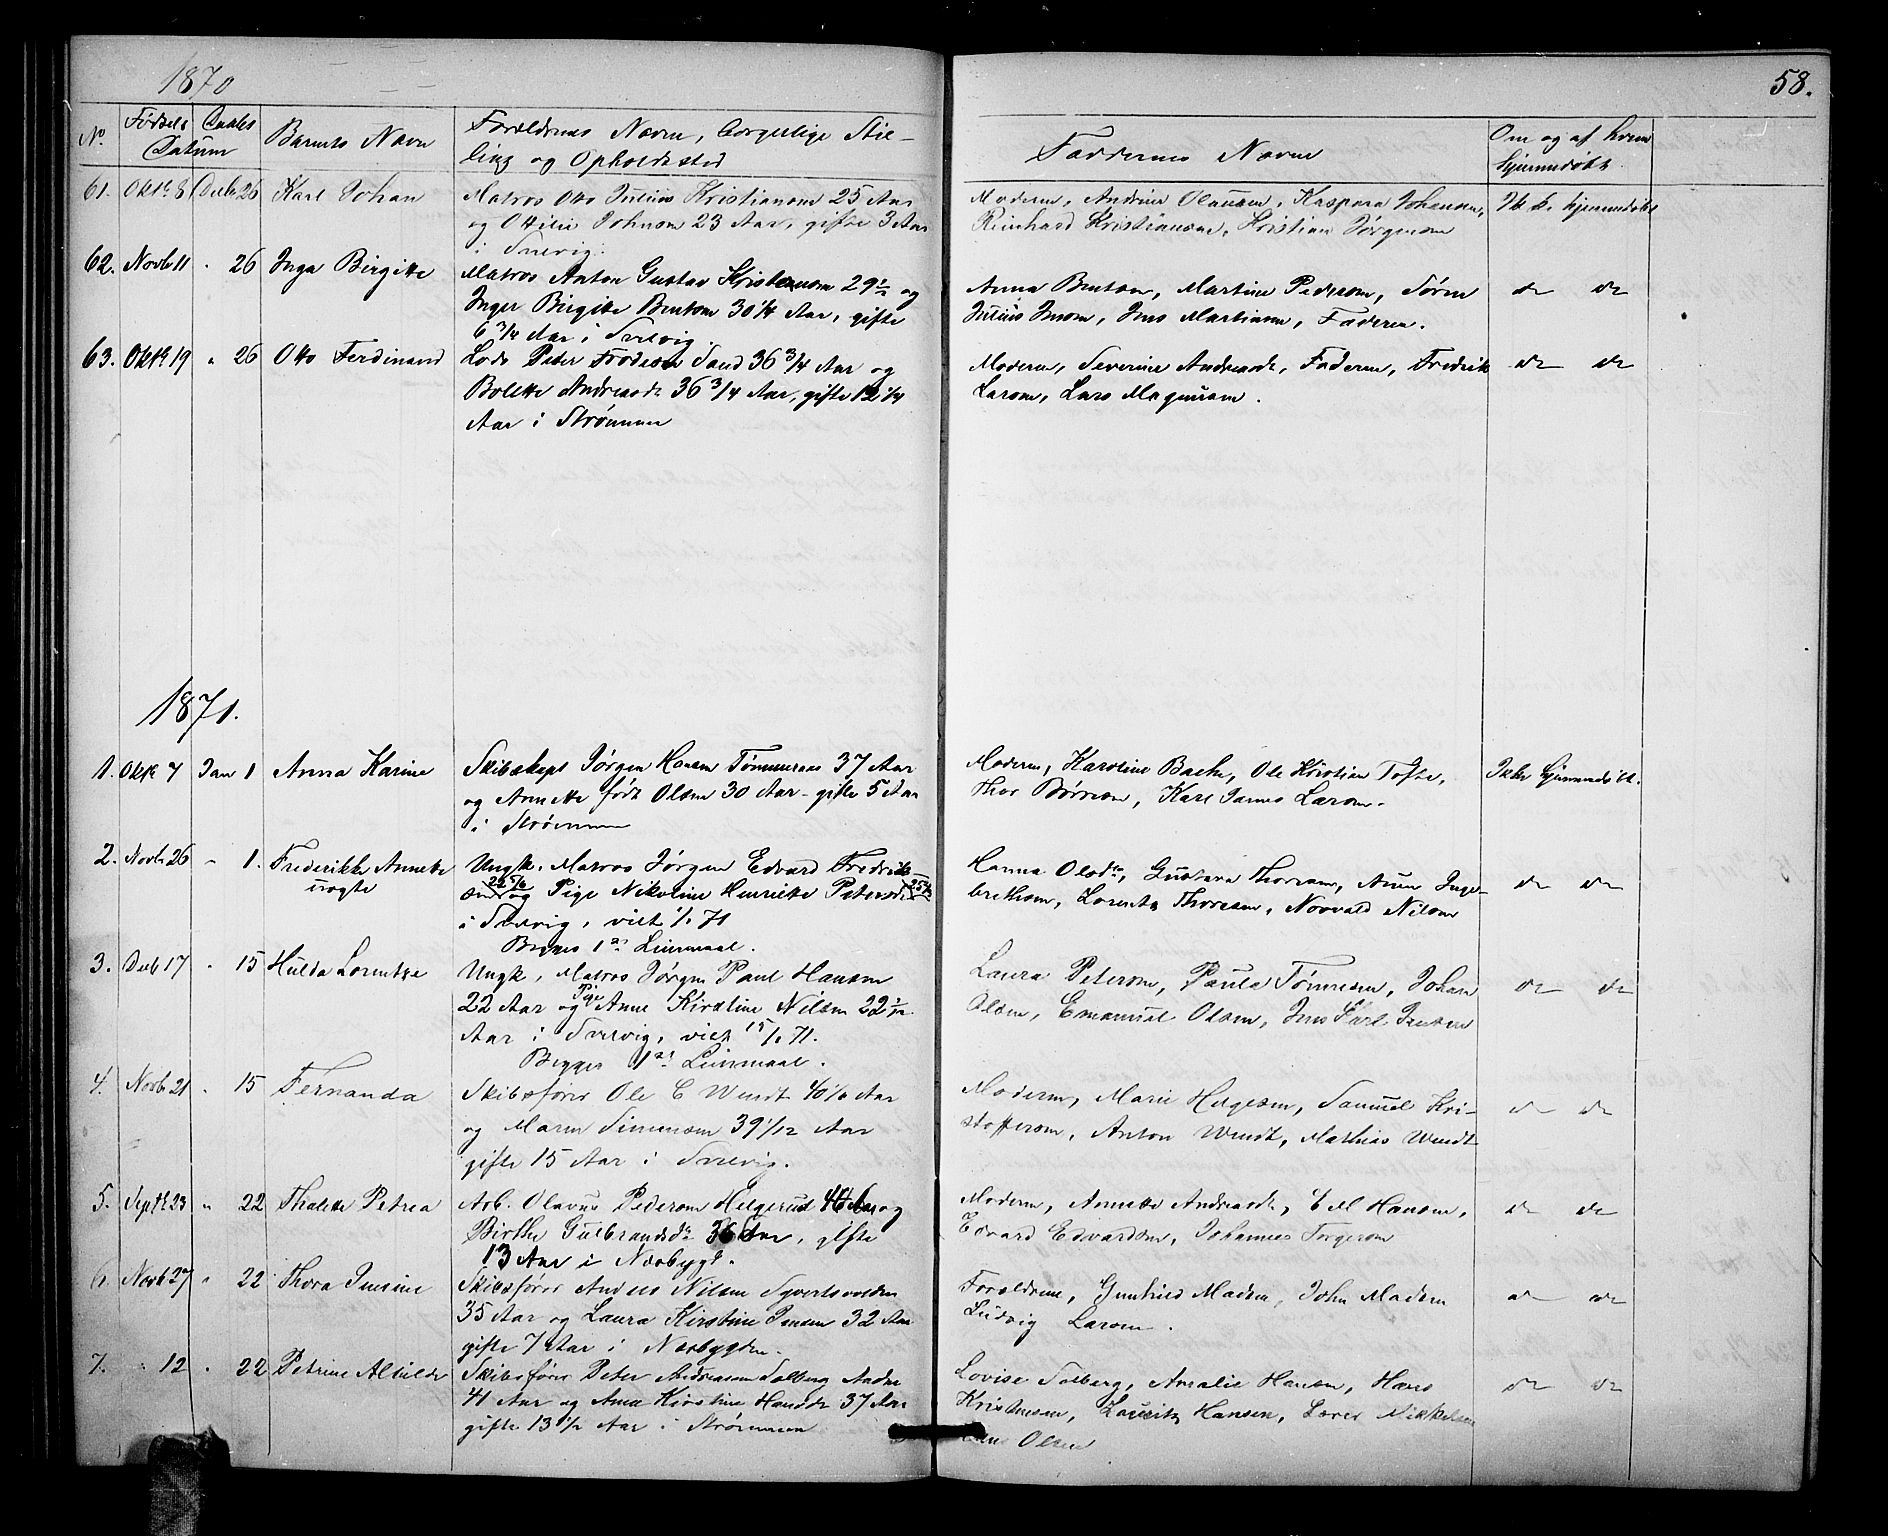 1870
58.
No Fødsels Daabs Datum Barnets Navn Forældrenes Navne, borgerlige Stil-
ling og Opholdssted
Faddernes Navne
Om og af hvem
hjemmedøbt.
61. Oktr. 8 Decbr 26 Karl Johan Matros Otto Julius Kristiansen 25 Aar
og Ottilie Johnsen 23 Aar, gifte 3 Aar
i Svelvig.
Moderen, Andrine Olausen, Kaspara Johansen,
Reinhard Kristiansen, Kristian Jørgensen
Ik. b. hjemmedøbt
62. Novb 11 " 26 Inga Birgitte Matros Anton Gustav Kristensen 29 1/2 og
Inger Birgitte Bentsen 30 1/4 Aar, gifte
6 3/4 Aar i Svelvig.
Anna Bentsen, Martine Pedersen, Søren
Julius Jensen, Jens Martinsen, Faderen.
do do
63. Oktr 19 " 26 Otto Ferdinand Lods Peter Frodesen Sand 36 3/4 Aar og
Bolette Andreasdr 36 3/4 Aar, gifte 12 1/4
Aar i Strømmen
Moderen, Severine Andreasdr, Faderen, Fredrik
Larsen, Lars Magnusen.
do do
1871.
1. Oktr 7 Jan 1 Anna Karine Skibskapt Jørgen Hansen Tømmeraas 37 Aar
og Annette født Olsen 30 Aar - gifte 5 Aar
i Strømmen
Moderen, Karoline Bache, Ole Kristian Tofte,
Thor Børresen, Karl James Larsen.
Ikke hjemmedøbt.
2. Novb 26 " 1. Frederikke Annette
uægte
Ungk. Matros Jørgen Edvard Fredrik-
sen 22 5/6 og Pige Nikoline Henriette Petersdr
i Svelvig, viet 1/1 71
Begges 1ste Leiermaal.
Hanna Olsdtr, Gustava Thoresen, Anen Inge-
brethsen, Lorents Thoresen, Norvald Nilsen
do do
3. Decb 17 " 15 Hulda Lorentze Ungk. Matros Jørgen Paul Hansen
22 Aar og Pige Anne Kirstine Nilsen 22 1/2
Aar i Svelvig, viet 15/1 71.
Begges 1ste Leiermaal.
Laura Petersen, Paule Tønnesen, Johan
Olsen, Emanuel Olsen, Jens Karl Jensen
do do
4. Novb 21 " 15 Fernanda Skibsfører Ole C Wendt 40 1/6 Aar
og Maren Simensen 39 1/12 Aar
gifte 15 Aar i Svelvig.
Moderen, Marie Helgesen, Samuel Kri-
stoffersen, Anton Wendt, Mathias Wendt
do do
5. Septb 23 " 22 Thalette Petrea Arb. Olavus Pedersen Helgerud 44 Aar og
Birthe Gulbrandsdr 36 Aar, gifte
13 Aar i Nesbygd.
Moderen, Annette Andreasdr, E M Hansen,
Edvard Edvardsen, Johannes Torgersen
do do
6. Novb 27 " 22 Thora Jensine Skibsfører Anders Nilsen Syvertsvolden
35 Aar og Laura Kirstine Jensen 32 Aar
gifte 7 Aar i Nesbygden.
Forældrene, Gunhild Madsen, John Madsen
Ludvig Larsen.
do do
7. " 12 " 22 Petrine Alvilde Skibsfører Peter Andreasen Solberg
41 Aar og Anna Kirstine Hansdr 37 Aar
gifte 13 1/2 Aar i Strømmen
Lovise Solberg, Amalie Hansen, Hans
Kristensen, Lauritz Hansen, Lars Mikkelsen
Olsen
do do